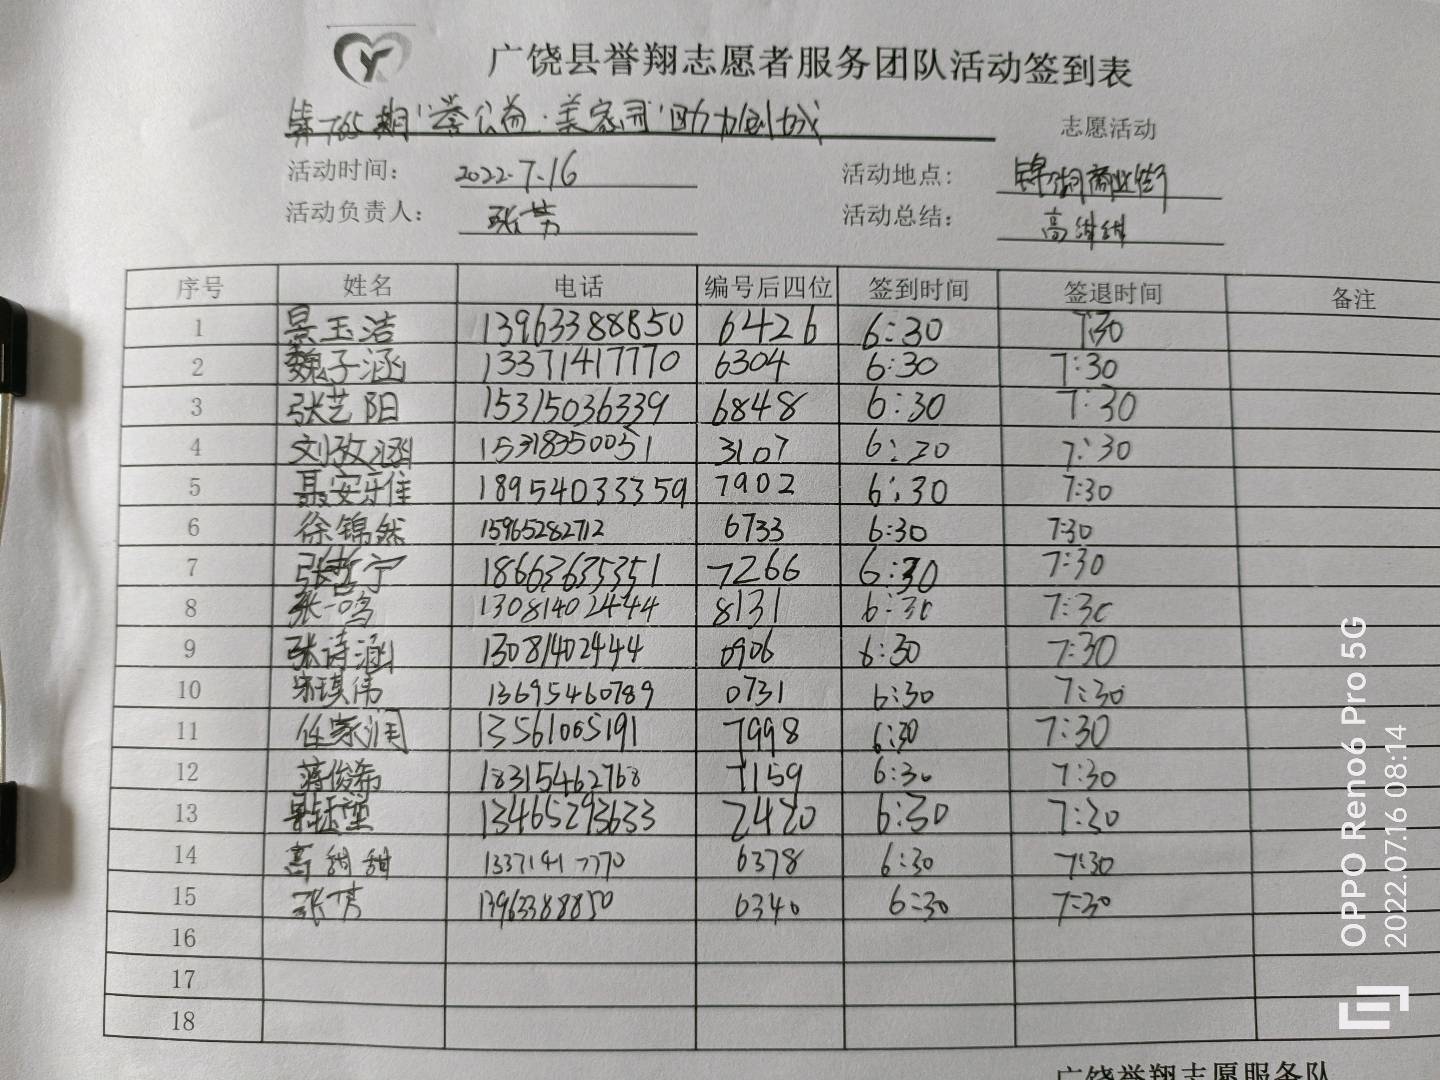 广饶县誉翔志愿者服务团队活动签到表
第765期"誉公益·美家园"助力创城 志愿活动
活动时间: 2022.7.16 活动地点: 锦湖商业街
活动负责人: 张芳 活动总结: 高甜甜
序号 姓名 电话 编号后四位 签到时间 签退时间 备注
1 景玉洁 13963388850 6426 6:30 7:30
2 魏子涵 13371417770 6304 6:30 7:30
3 张艺阳 15315036339 6848 6:30 7:30
4 刘孜涵 15318350051 3107 6:20 7:30
5 聂安乐佳 18954033359 7902 6:30 7:30
6 徐锦然 15965282712 6733 6:30 7:30
7 张哲宁 18663635351 7266 6:30 7:30
8 张一鸣 13081402444 8131 6:30 7:30
9 张诗涵 13081402444 0906 6:30 7:30
10 宋琪伟 13695460789 0731 6:30 7:30
11 任家润 13561065191 7998 6:30 7:30
12 蒋俊希 18315462768 7159 6:30 7:30
13 13465293633 2420 6:30 7:30
14 高甜甜 13371417770 6378 6:30 7:30
15 张芳 13963388850 6340 6:30 7:30
16
17
18
广饶誉翔志愿服务队
OPPO Reno6 Pro 5G
2022.07.16 08:14